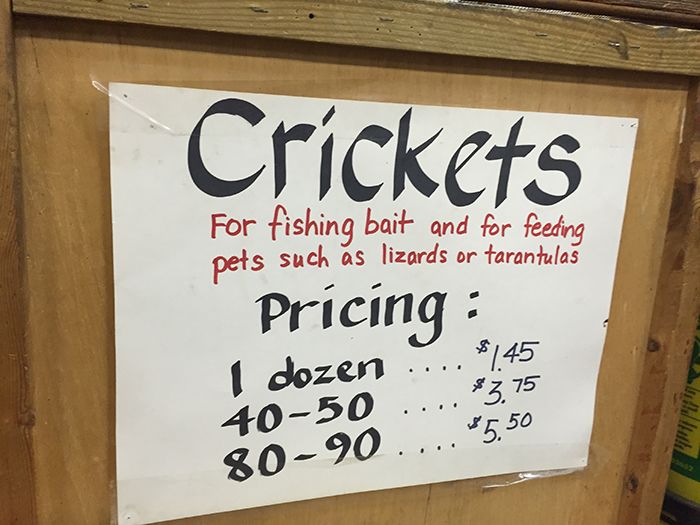 Crickets
For fishing bait and for feeding
pets such as lizards or tarantulas
Pricing :
1 dozen .... $1.45
40-50 .... $3.75
80-90 .... $5.50